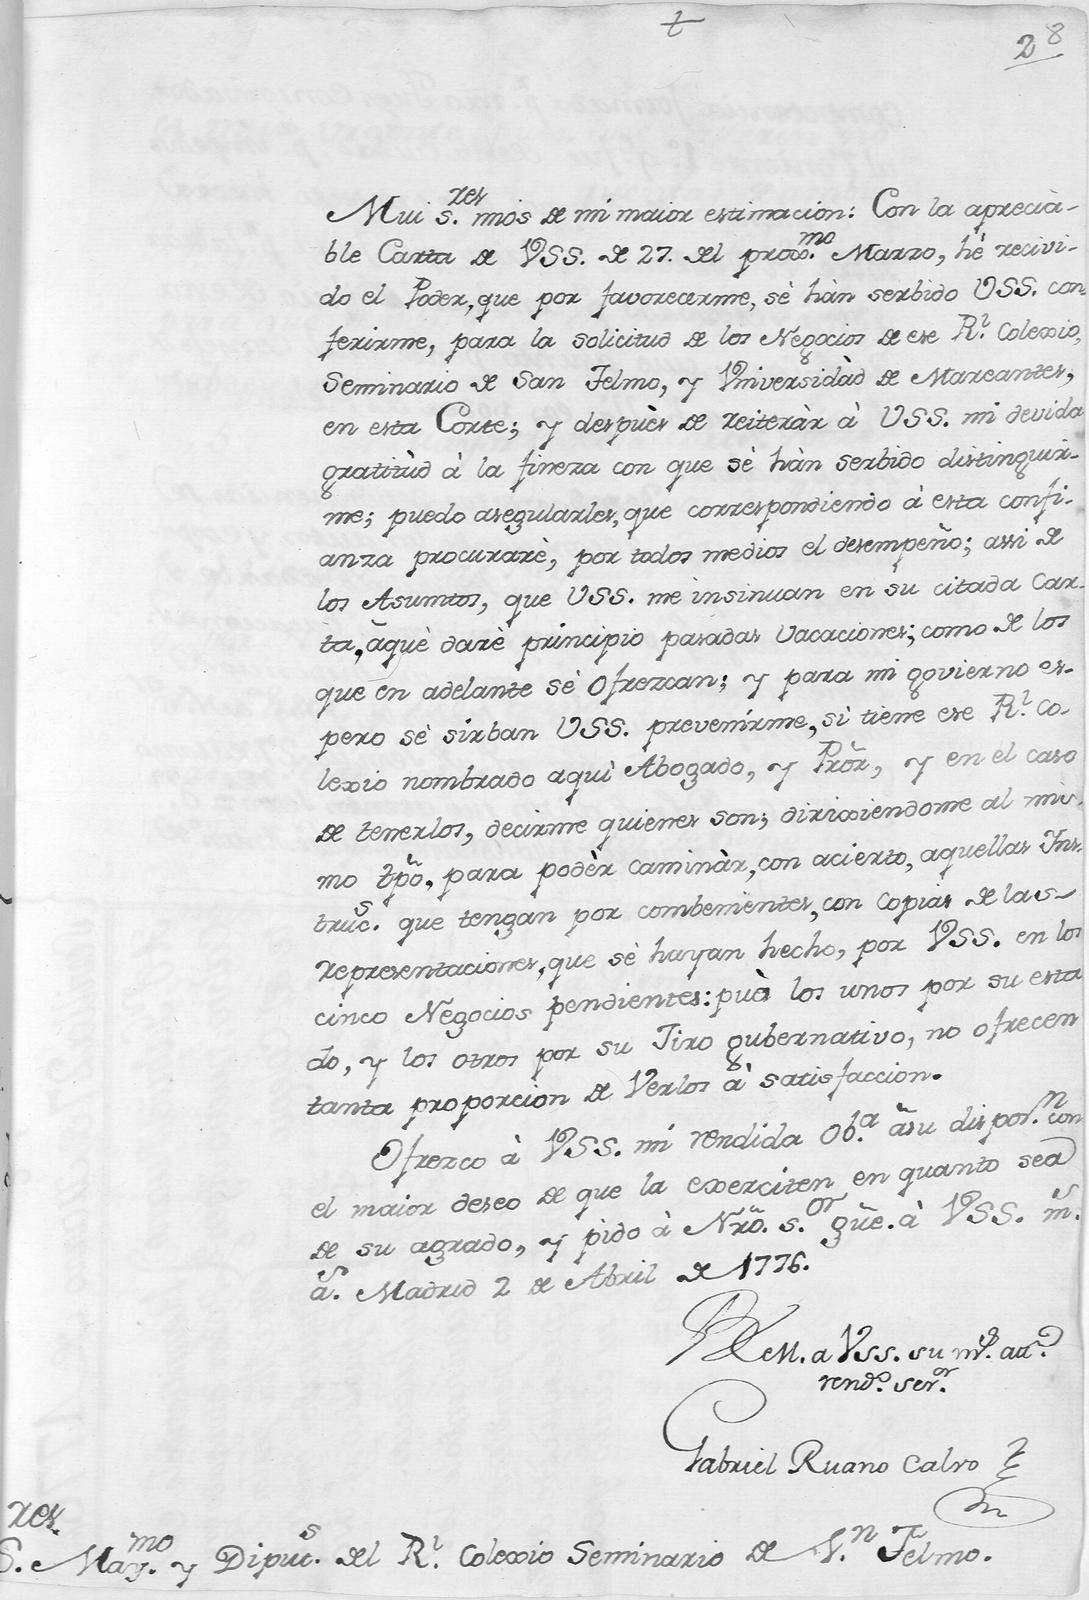 t
28
Mui s.res mios de mi maior estimacion: Con la aprecià-
ble Carta de VSS. de 27. del prox.mo Marzo, hè recivi-
do el Poder, que por favorecerme, sè hàn serbido USS. con
ferirme, para la solicitud de los Negocios de ese R.l Colexio,
Seminario de San Telmo, y Vniversidàd de Mareantes,
en esta Corte; y despuès de reiteràr à USS. mi devida
gratitùd à la fineza con que sè hàn serbido distinguir-
me; puedo asegularles, que correspondiendo à esta confi-
anza procurarè, por todos medios el desempeño; assi de
los Asumtos, que USS. me insinuan en su citada Car-
ta, àquè darè principio pasadas Vacaciones; como de los
que en adelante sè ofrezcan; y para mi govierno es-
pero sè sirban USS. prevenirme, si tiene ese R.l Co-
lexio nombrado aquì Abogado, y Prõr, y en el caso
de tenerlos, decirme quienes son; dirixiendome al mis-
mo tpõ, para podèr caminàr, con acierto, aquellas Ins-
truc.s que tengan por combenientes, con copias de las
representaciones, que sè hayan hecho, por VSS. en los
cinco Negocios pendientes: pues los unos por su esta
do, y los otros por su Jiro gubernativo, no ofrecen
tanta proporcion de Verlos à satisfaccion.
Ofrezco à VSS. mi rendida ob.a àsu dispos.n con
el maior deseo de que la exerciten en quanto sea
de su agrado, y pido à Nrõ. s.or gũe. à VSS. m.s
a.s Madrid 2 de Abril de 1776.
BLM. a Vss. su m.s att.o
rend.o ser.or
Gabriel Ruano Calvo
S.res May.mo y Diput.s del R.l Colexio Seminario de S.n Telmo.